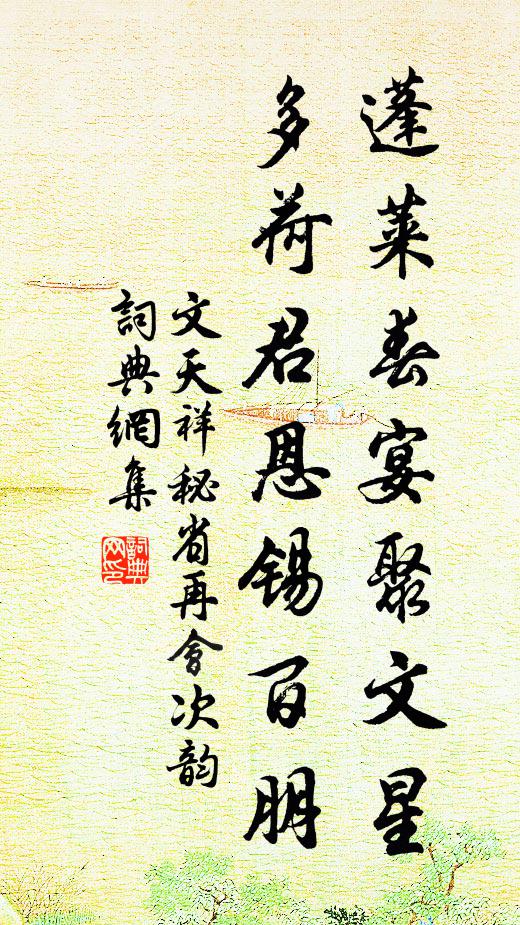 蓬莱春宴聚文星
多荷君恩锡百朋
文天祥秘省再会次韵
詞典網集
詞典网印